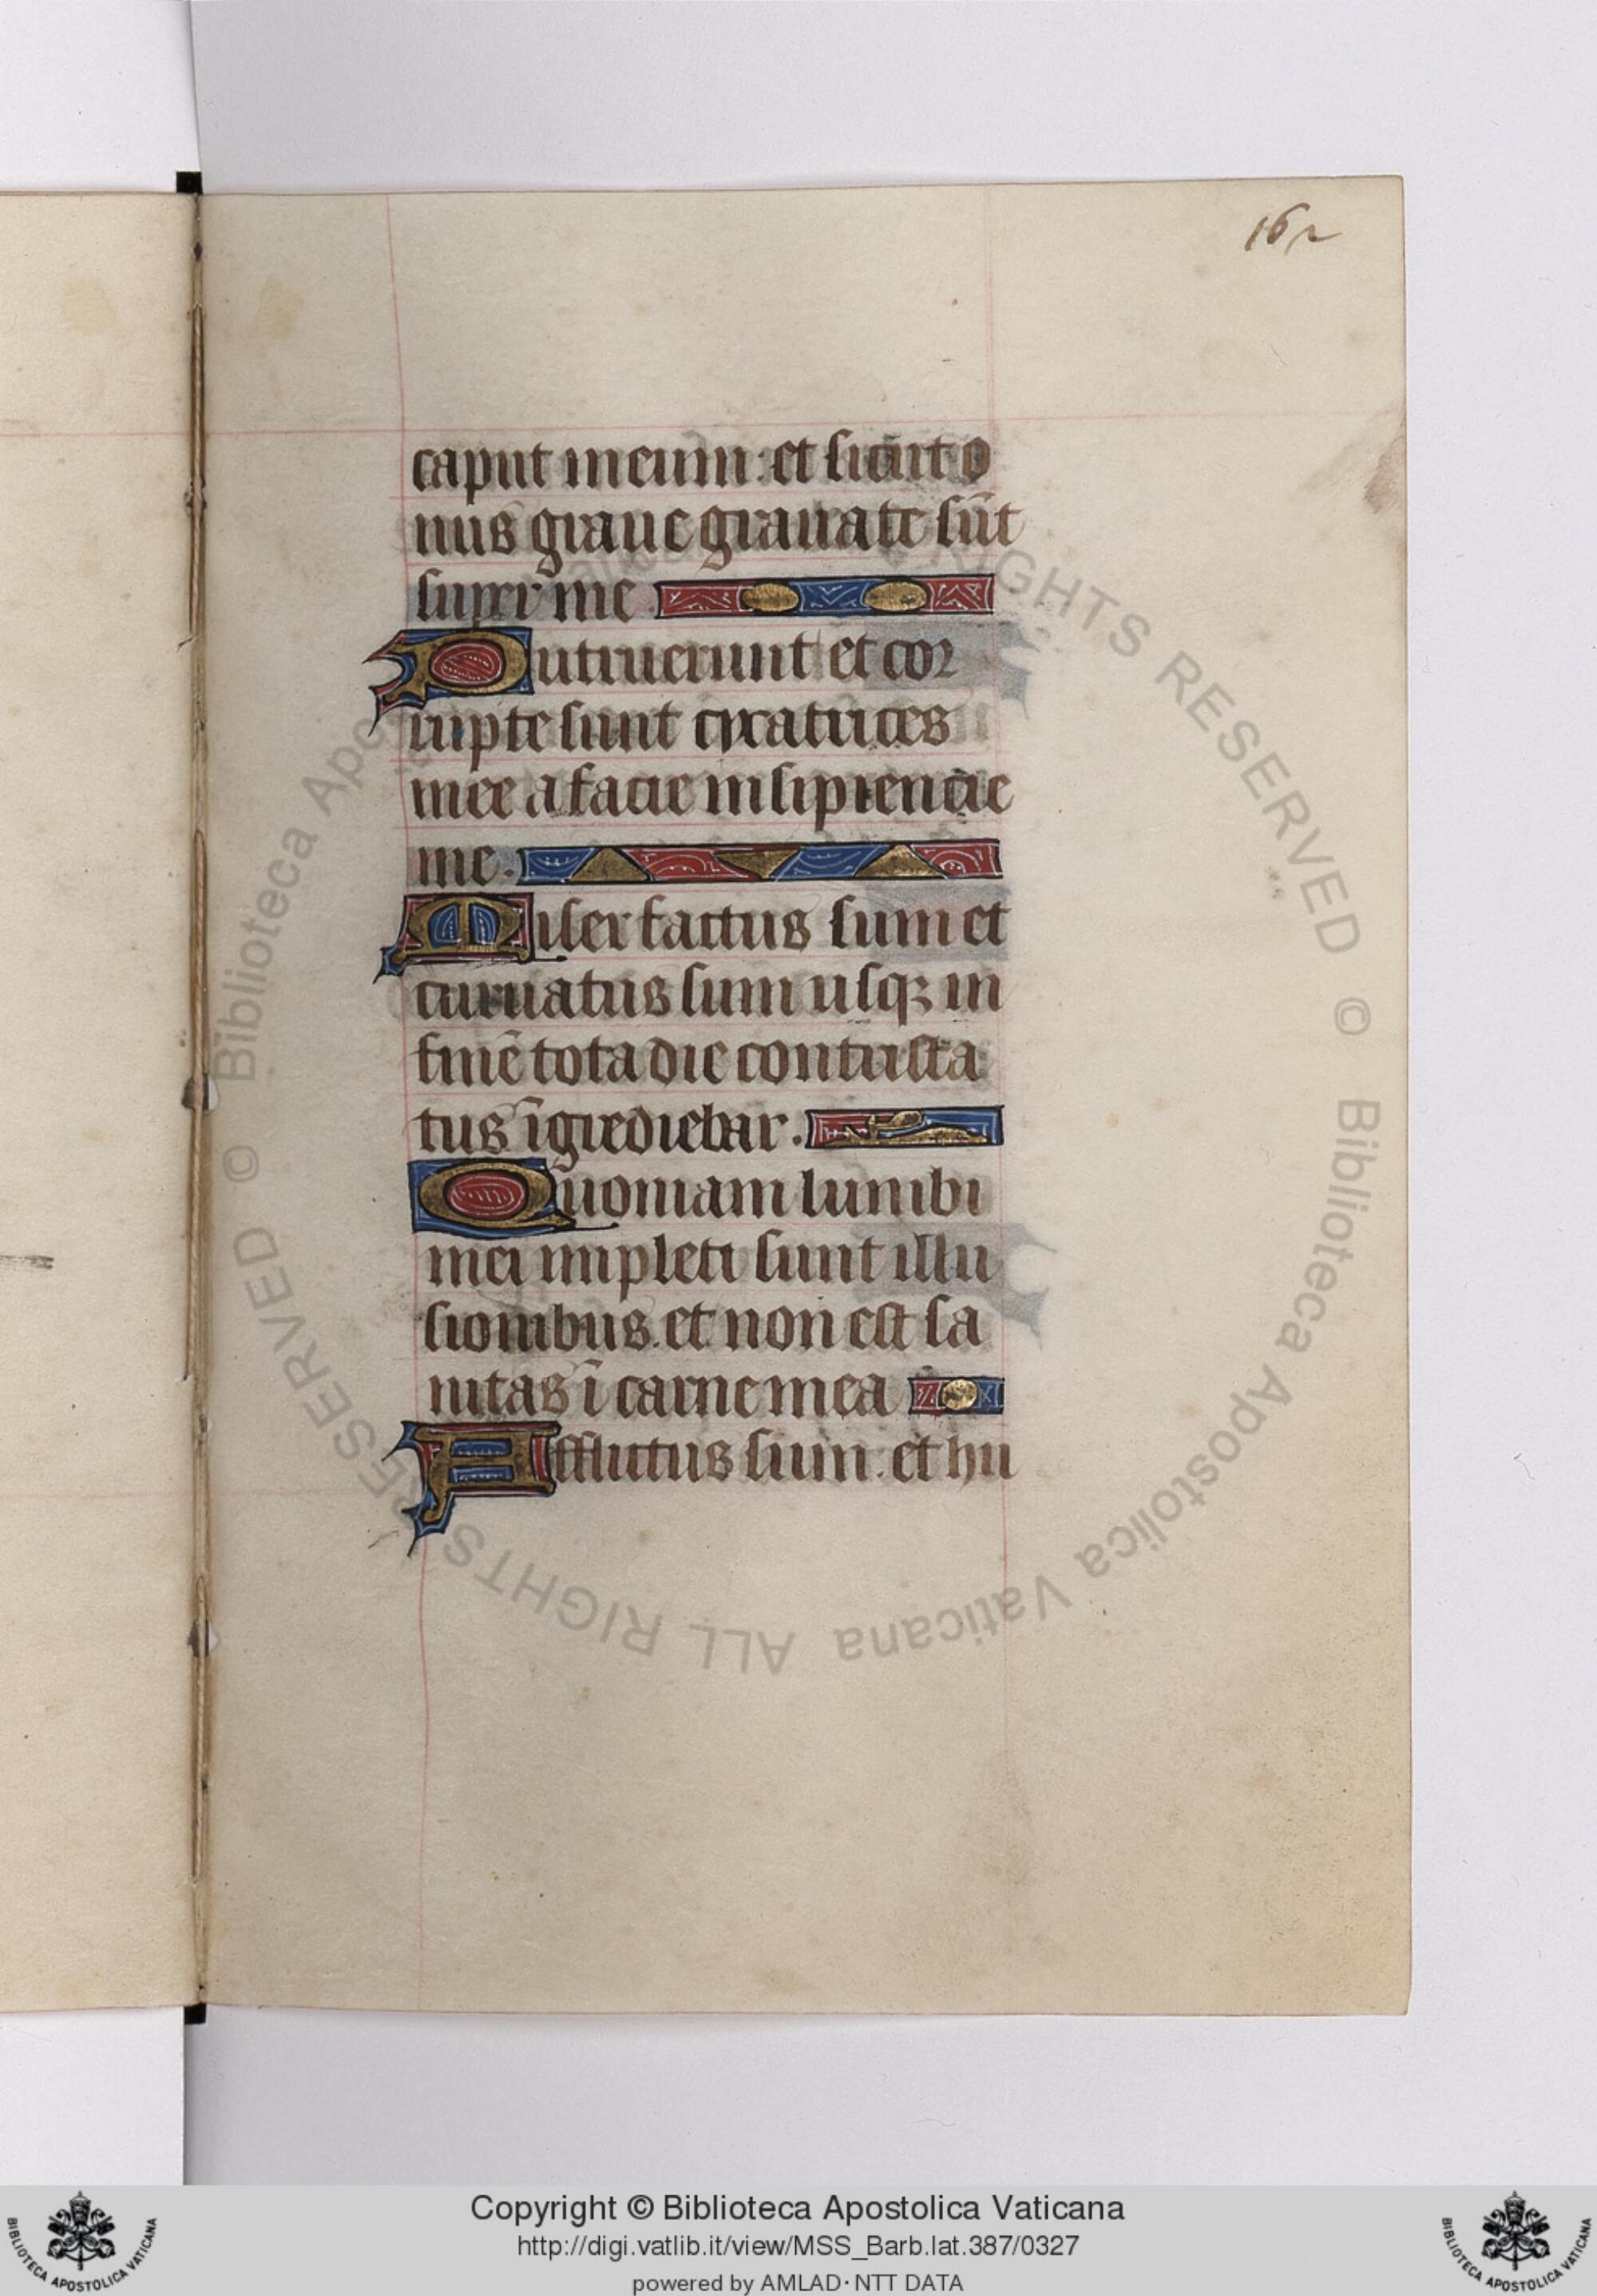 162
caput meum: et sicut o
nus graue grauate sūt
super me
Putruerunt et cor
rupte sunt cycatrices
mee a facie insipiencie
me.
Miser factus sum et
curuatus sum usqꝫ in
finē tota die contrista
tus īgrediebar.
Quoniam lumbi
mei impleti sunt illu
sionibus. et non est sa
nitas ī carne mea
Afflictus sum: et hu
© Biblioteca Apostolica Vaticana ALL RIGHTS RESERVED © Biblioteca Apostolica Vaticana ALL RIGHTS RESERVED
Copyright © Biblioteca Apostolica Vaticana
http://digi.vatlib.it/view/MSS_Barb.lat.387/0327
powered by AMLAD·NTT DATA
BIBLIOTECA APOSTOLICA VATICANA
BIBLIOTECA APOSTOLICA VATICANA